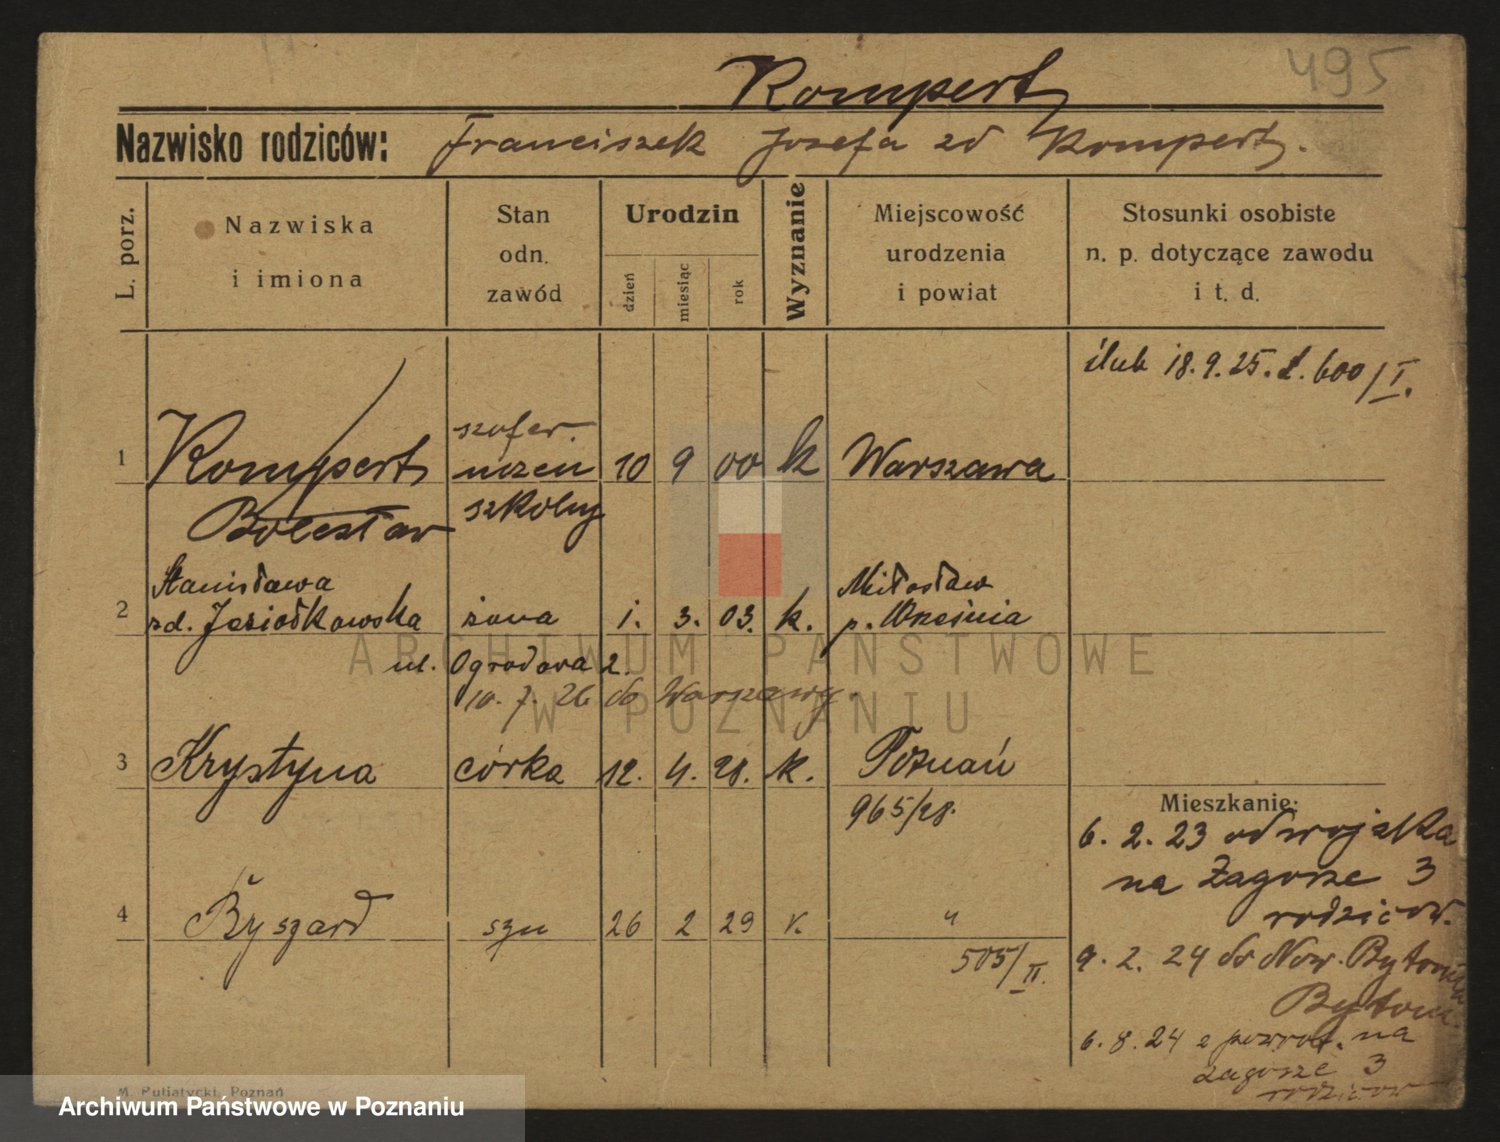 495
Rompert
Nazwisko rodziców: Franciszek Jozefa zd Rompert.
L. porz.
Nazwiska
i imiona
Stan
odn.
zawód
Urodzin
dzień
miesiąc
rok
Wyznanie
Miejscowość
urodzenia
i powiat
Stosunki osobiste
n. p. dotyczące zawodu
i t. d.
ślub 18.9.25. L. 600/I.
szofer.
1 Rompert uczeń 10 9 00 k Warszawa
Bolesław szkolny
Stanisława Miłosław
2 zd. Jeziołkowska żona 1. 3. 03. k. p. Września
ul. Ogrodowa 2.
10. 7. 26 do Warszawy.
3 Krystyna córka 12. 4. 28. k. Poznań
965/28.
Mieszkanie:
6. 2. 23 od wojska
na Zagorze 3
rodziców.
4 Ryszard syn 26 2 29 k. "
505/II.
9. 2. 24 do Now. Bytomia
Bytom.
6. 8. 24 z powrot. na
Zagorze 3
rodziców
M. Putiatycki, Poznań
ARCHIWUM PAŃSTWOWE
W POZNANIU
Archiwum Państwowe w Poznaniu